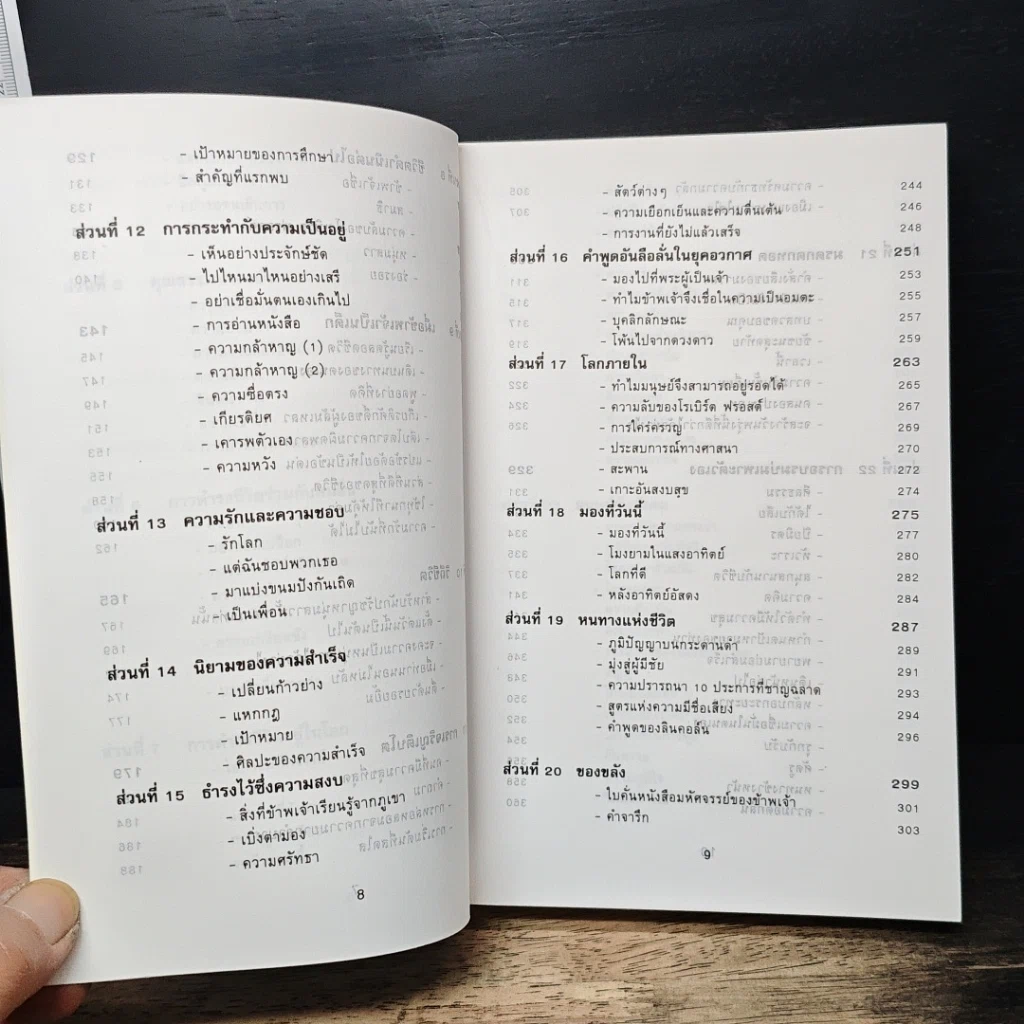 - เป้าหมายของการศึกษา
- สำคัญที่แรกพบ
ส่วนที่ 12 การกระทำกับความเป็นอยู่
- เห็นอย่างประจักษ์ชัด
- ไปไหนมาไหนอย่างเสรี
- อย่าเชื่อมั่นตนเองเกินไป
- การอ่านหนังสือ
- ความกล้าหาญ (1)
- ความกล้าหาญ (2)
- ความซื่อตรง
- เกียรติยศ
- เคารพตัวเอง
- ความหวัง
ส่วนที่ 13 ความรักและความชอบ
- รักโลก
- แต่ฉันชอบพวกเธอ
- มาแบ่งขนมปังกันเถิด
- เป็นเพื่อน
ส่วนที่ 14 นิยามของความสำเร็จ
- เปลี่ยนก้าวย่าง
- แหกกฎ
- เป้าหมาย
- ศิลปะของความสำเร็จ
ส่วนที่ 15 ธำรงไว้ซึ่งความสงบ
- สิ่งที่ข้าพเจ้าเรียนรู้จากภูเขา
- เบิ่งตามอง
- ความศรัทธา
8
- สัตว์ต่างๆ 244
- ความเยือกเย็นและความตื่นเต้น 246
- การงานที่ยังไม่แล้วเสร็จ 248
ส่วนที่ 16 คำพูดอันลือลั่นในยุคอวกาศ 251
- มองไปที่พระผู้เป็นเจ้า 253
- ทำไมข้าพเจ้าจึงเชื่อในความเป็นอมตะ 255
- บุคลิกลักษณะ 257
- โพ้นไปจากดวงดาว 259
ส่วนที่ 17 โลกภายใน 263
- ทำไมมนุษย์จึงสามารถอยู่รอดได้ 265
- ความลับของโรเบิร์ต ฟรอสต์ 267
- การใคร่ครวญ 269
- ประสบการณ์ทางศาสนา 270
- สะพาน 272
- เกาะอันสงบสุข 274
ส่วนที่ 18 มองที่วันนี้ 275
- มองที่วันนี้ 277
- โมงยามในแสงอาทิตย์ 280
- โลกที่ดี 282
- หลังอาทิตย์อัสดง 284
ส่วนที่ 19 หนทางแห่งชีวิต 287
- ภูมิปัญญาบนกระดานดำ 289
- มุ่งสู่ผู้มีชัย 291
- ความปรารถนา 10 ประการที่ชาญฉลาด 293
- สูตรแห่งความมีชื่อเสียง 294
- คำพูดของลินคอล์น 296
ส่วนที่ 20 ของขลัง 299
- ใบคั่นหนังสือมหัศจรรย์ของข้าพเจ้า 301
- คำจารึก 303
9